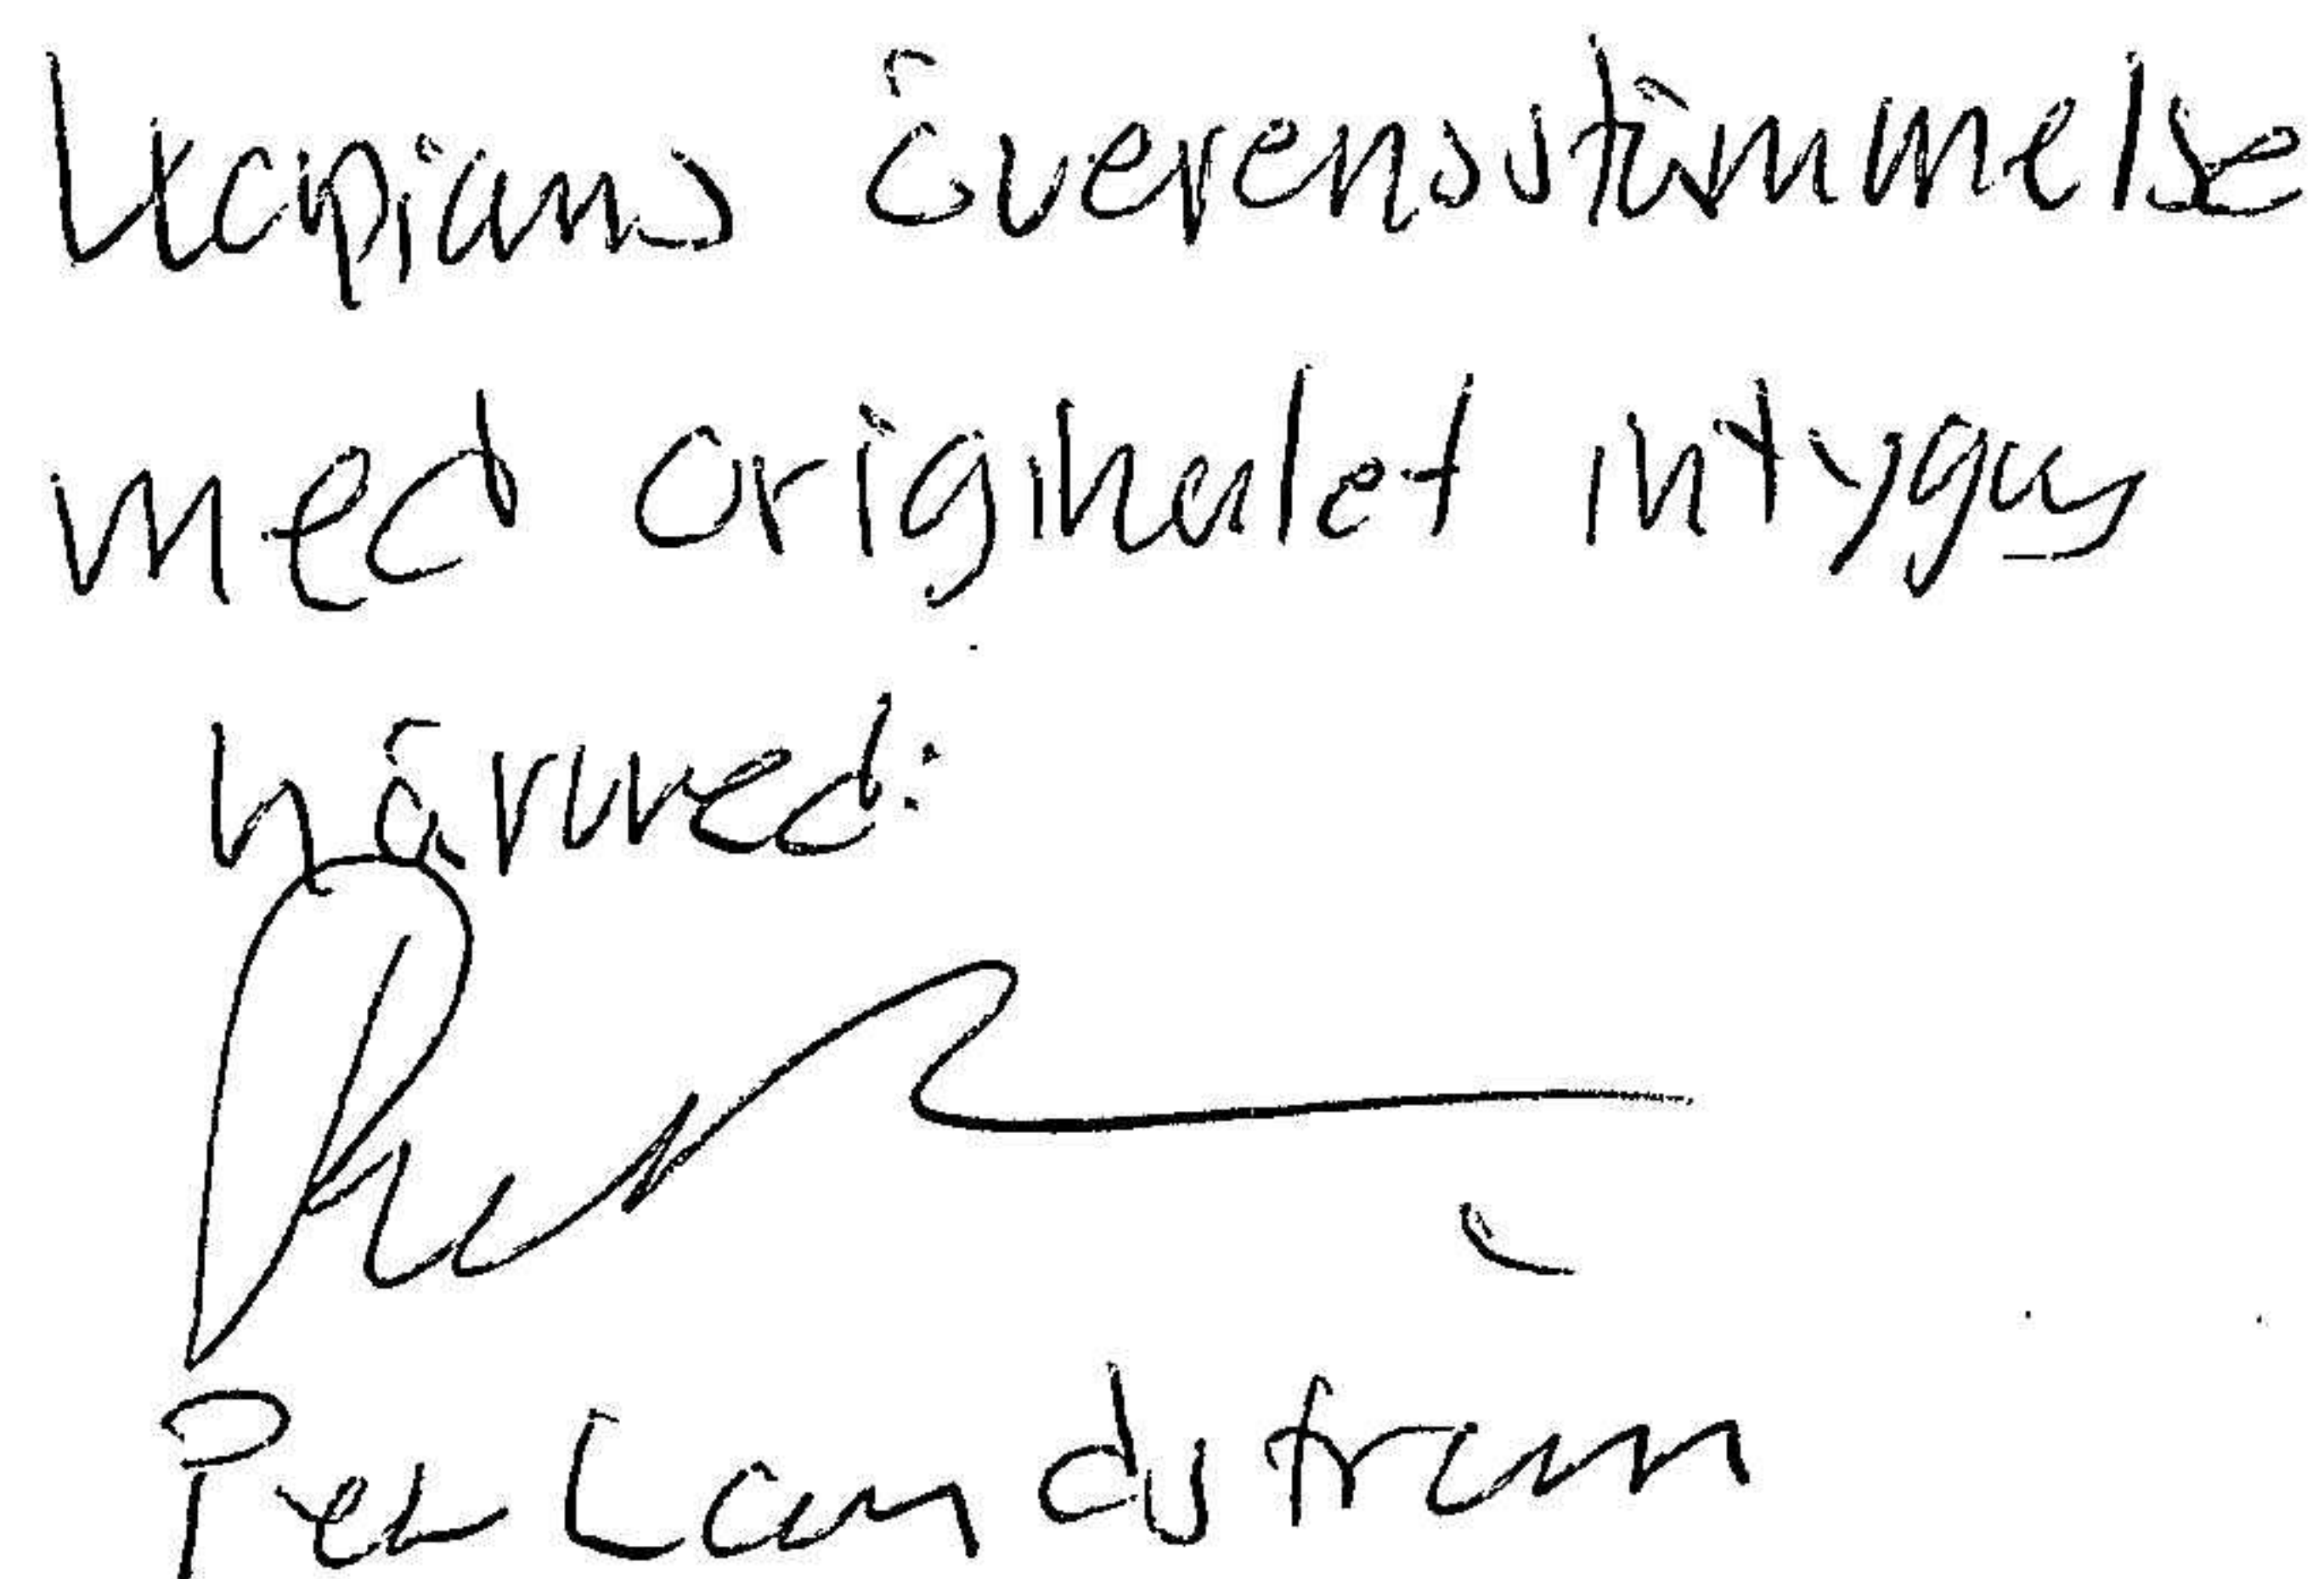 Kopians överensstämmelse
med originalet intygas
härmed:
Per Landström